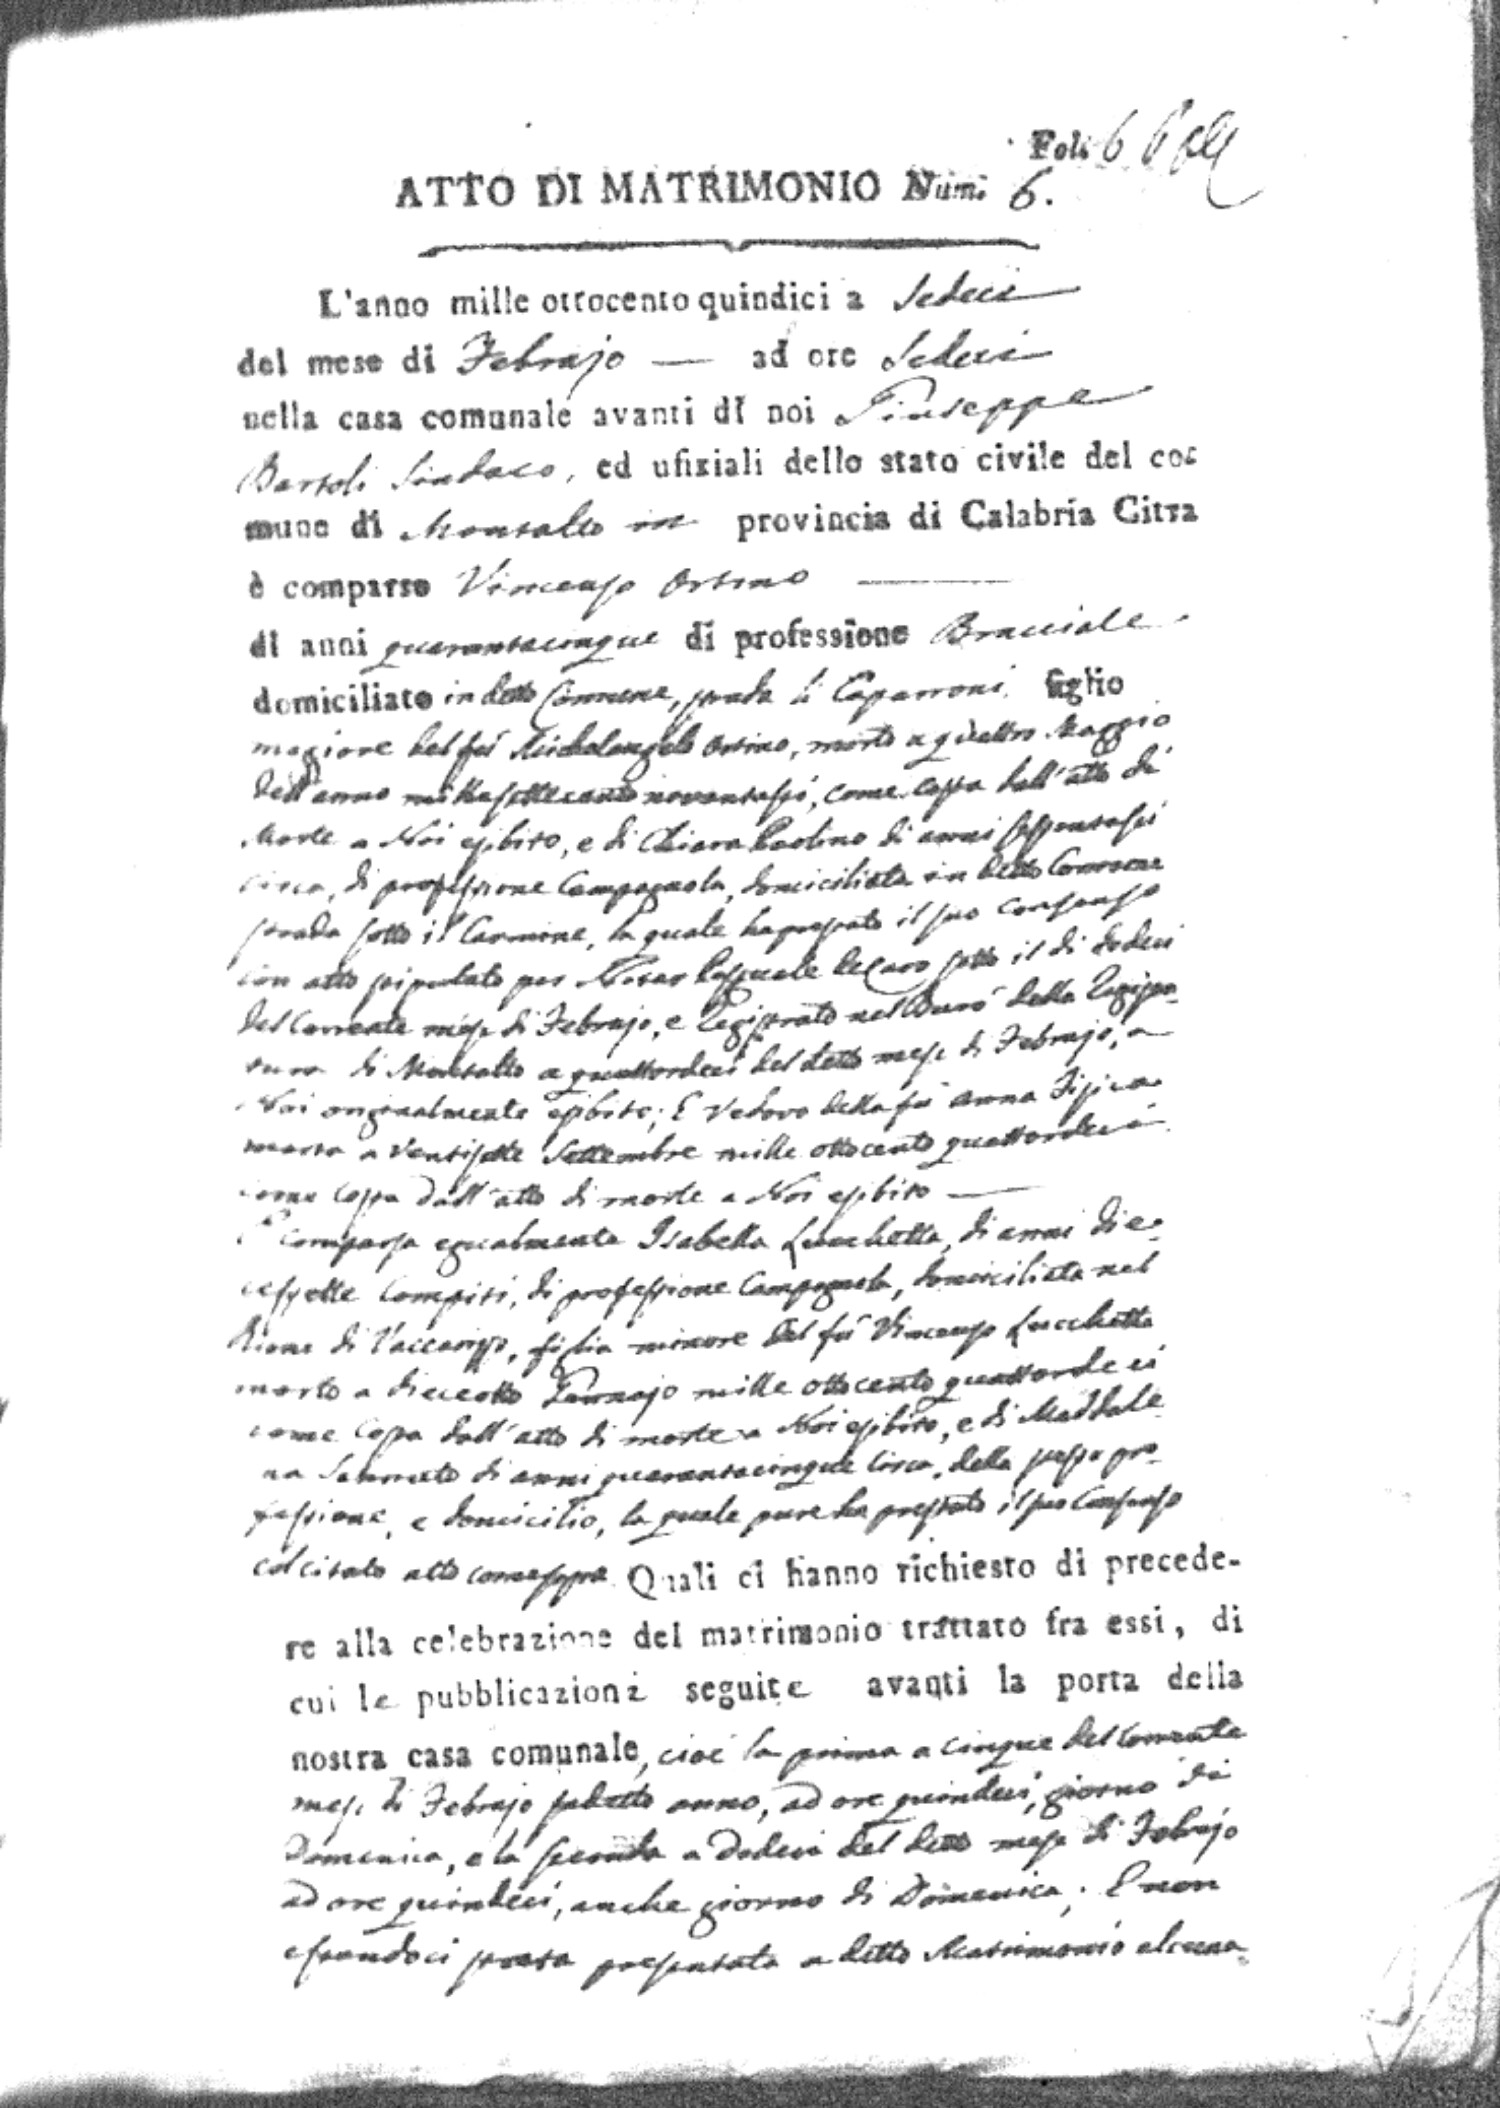 Foli 6
ATTO DI MATRIMONIO Num. 6.
L'anno mille ottocento quindici a Sedeci
del mese di Febrajo — ad ore Sedeci
nella casa comunale avanti di noi Giuseppe
Bartoli Sindaco, ed ufiziali dello stato civile del co-
mune di Montalto in provincia di Calabria Citra
è comparso Vincenzo Orsino
di anni quarantacinque di professione Bracciale
domiciliato in detto Comune, strada li Caparroni figlio
magiore del fù Michelangelo Orsino, morto a quattro Maggio
dell'anno mille settecento novantasei, come costa dall'atto di
Morte a Noi esibito, e di Chiara Paolino di anni sessantasei
circa, di professione Campagnola, domiciliata in detto Comune
strada sotto il Carmine, la quale ha prestato il suo consenso
con atto stipulato per Notar Pasquale DeCaro sotto il di dodeci
del corrente mese di Febrajo, e Registrato nel Burò della Regista-
tura di Montalto a quattordeci del detto mese di Febrajo, a
Noi originalmente esibito; E Vedovo della fù Anna
morta a Ventisette Settembre mille ottocento quattordeci
come costa dall'atto di morte a Noi esibito —
E comparsa egualmente Isabella Lucchetta, di anni die-
cessette compiti, di professione Campagnola, domiciliata nel
Rione di Vaccarizzo, figlia minore del fù Vincenzo Lucchetta
morto a dieceotto Gennajo mille ottocento quattordeci
come costa dall'atto di morte a Noi esibito, e di Maddale-
na di anni quarantacinque circa, della stessa pro-
fessione, e domicilio, la quale pure ha prestato il suo Consenso
col citato atto come sopra Quali ci hanno richiesto di precede-
re alla celebrazione del matrimonio trattato fra essi, di
cui le pubblicazioni seguite avanti la porta della
nostra casa comunale, cioè la prima a cinque del corrente
mese di Febrajo sudetto anno, ad ore quindeci, giorno di
Domenica, e la seconda a Dodeci del detto mese di Febrajo
ad ore quindeci, anche giorno di Domenica; E non
essendoci stata presentata a detto Matrimonio alcuna